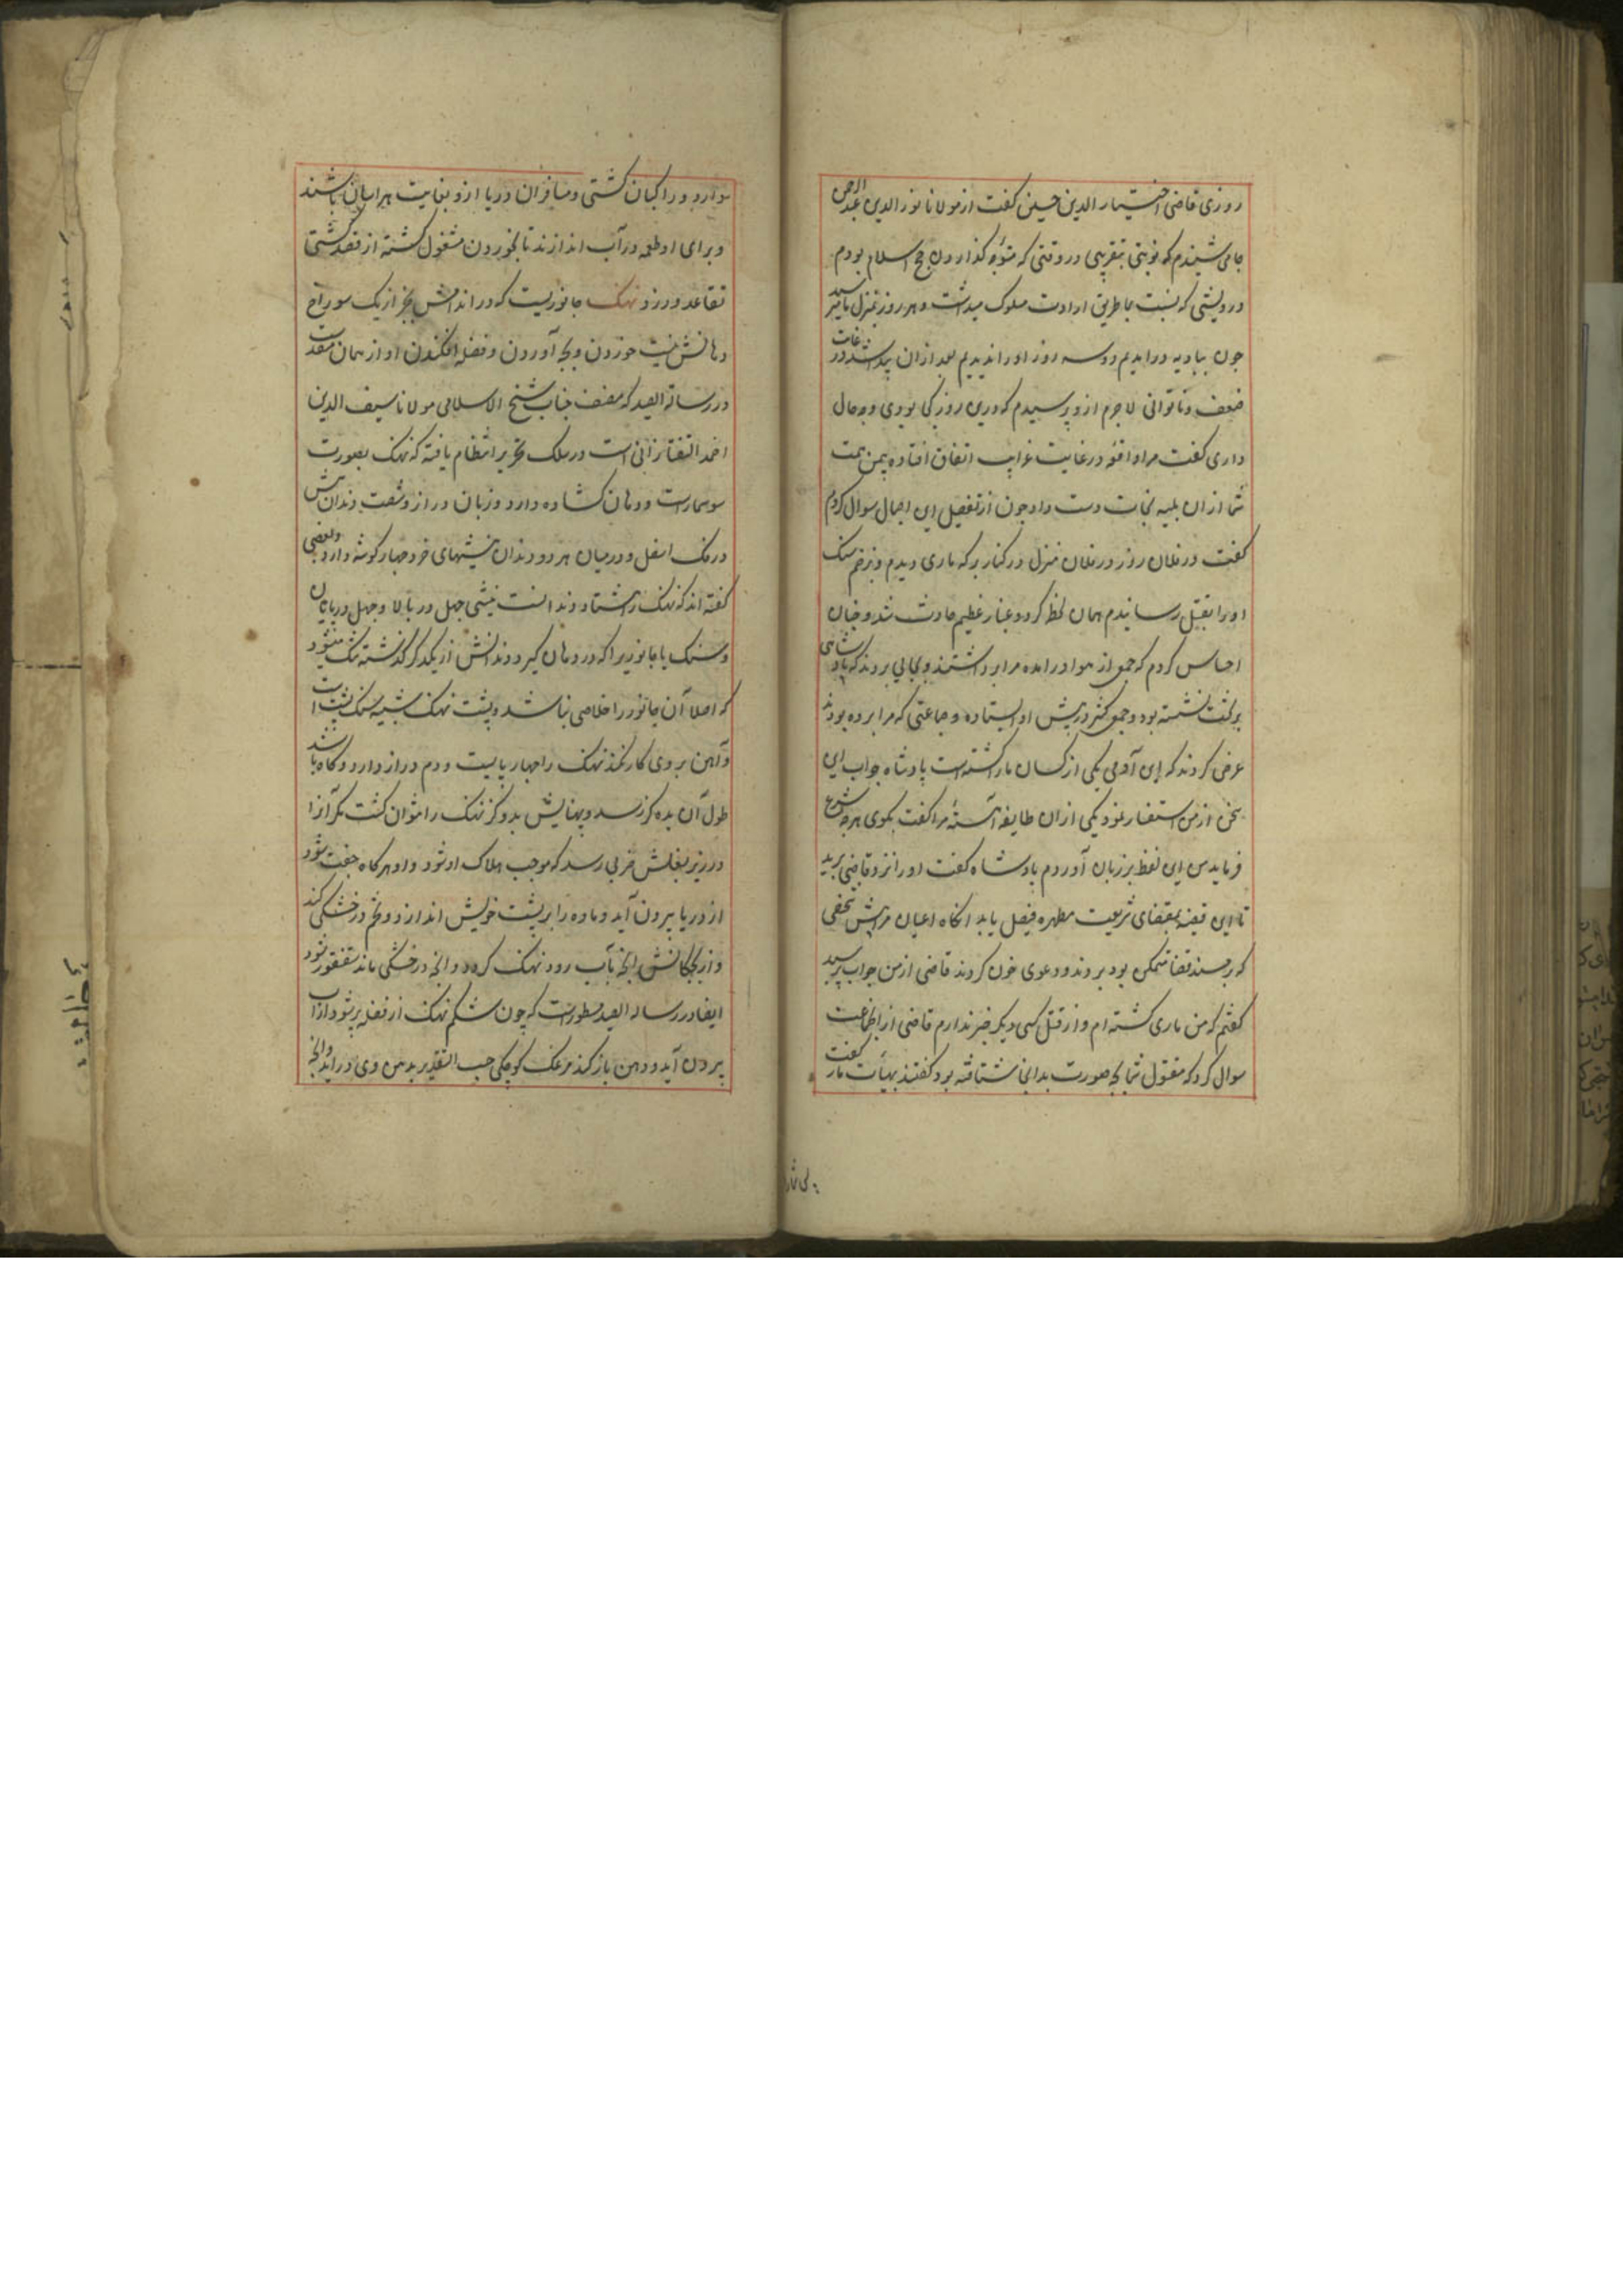 روزی قاضی اختیار الدین حسین گفت از مولانا نور الدین عبد الرحمن
جامی شنیدم که نوبتی بتقریبی در وقتی که متوجه گذاردن حج اسلام بودم
درویشی که نسبت بما طریق ارادت مسلوک میداشت و هر روز بمنزل ما میرسید
چون ببادیه درامدیم دو سه روز او را ندیدیم بعد از ان پیدا شد در غایت
ضعف و ناتوانی لاجرم ازو پرسیدم که درین روز کی بودی و چه حال
داری گفت مرا واقعه در غایت غرایب اتفاق افتاده بیمن همت
شما از ان بلیه نجات دست داد چون از تفصیل این اجمال سوال کردم
گفت در فلان روز در فلان منزل در کنار برکه ماری دیدم و بزخم سنک
او را بقتل رسانیدم همان لحظه کرد و غبار عظیم حادث شد و چنان
احساس کردم که جمعی از هوا درامده مرا برداشتند و بجایی بردند که پادشاهی
بر تخت نشسته بود و جمعی کثیر در پیش او ایستاده و جماعتی که مرا برده بودند
عرض کردند که این آدمی یکی از کسان ما را کشته است پادشاه جواب این
سخن از من استفسار نمود یکی از ان طایفه آهسته مرا گفت بکوی هرچه شرع
فرماید من این لفظ بر زبان آوردم پادشاه گفت او را نزد قاضی برید
تا این قضیه بمقتضای شریعت مطهره فیصل یابد انکاه اعیان مرا پیش شخصی
که بر مسند قضا متمکن بود بردند و دعوی خون کردند قاضی از من جواب پرسید
گفتم که من ماری کشته ام و از قتل کسی دیکر خبر ندارم قاضی از انجماعت
سوال کرد که مقتول شما بچه صورت بدانجا شتافته بود گفتند بهیأت مار گفت
سوارد و راکبان کشتی و مسافران دریا ازو بغایت هراسان باشند
و برای او طعمه در آب اندازند تا بخوردن مشغول کشته از قصد کشتی
تقاعد ورزد نهنک جانوریست که در اندامش بجز از یک سوراخ
دهانش نیست خوردن و بچه آوردن و فضله افکندن او از همان منفذست
در رسالة الصید که مصنف جناب شیخ الاسلامی مولانا سیف الدین
احمد التفتازانی است در سلک تحریر انتظام یافته که نهنک بصورت
سوسمارست و دهان کشاده دارد و زبان دراز و شصت دندان نیش
در فک اسفل و درمیان هر دو دندان نیشهای خرد چهار کوشه دارد و بعضی
گفته اند که نهنک را هشتاد دندانست نیشی چهل در بالا و چهل در پایان
و سنک یا جانوریرا که در دهان کیرد دندانش از یکدیکر کذشته تنک میشود
که اصلا آن جانور را خلاصی نباشد و پشت نهنک شبیه سنک پشت است
و آهن بروی کار نکند نهنک را چهار پایست و دم دراز دارد و کاه باشد
طول آن بده کز رسد و پهنایش بدو کز نهنک را نتوان کشت مکر آنرا
در زیر بغلش ضربی رسد که موجب هلاک او شود و او هر کاه جفت شود
از دریا بیرون آید و ماده را بر پشت خویش اندازد و تخم در خشکی کند
و از بچکانش انچه بآب رود نهنک کردد و انچه در خشکی ماند سقنقور شود
ایضا در رساله الصید مسطور است که چون شکم نهنک از فضله پر شود از آب
بیرون آید و دهن باز کند مرغک کوچکی حسب التقدیر بدهن وی دراید و انچه